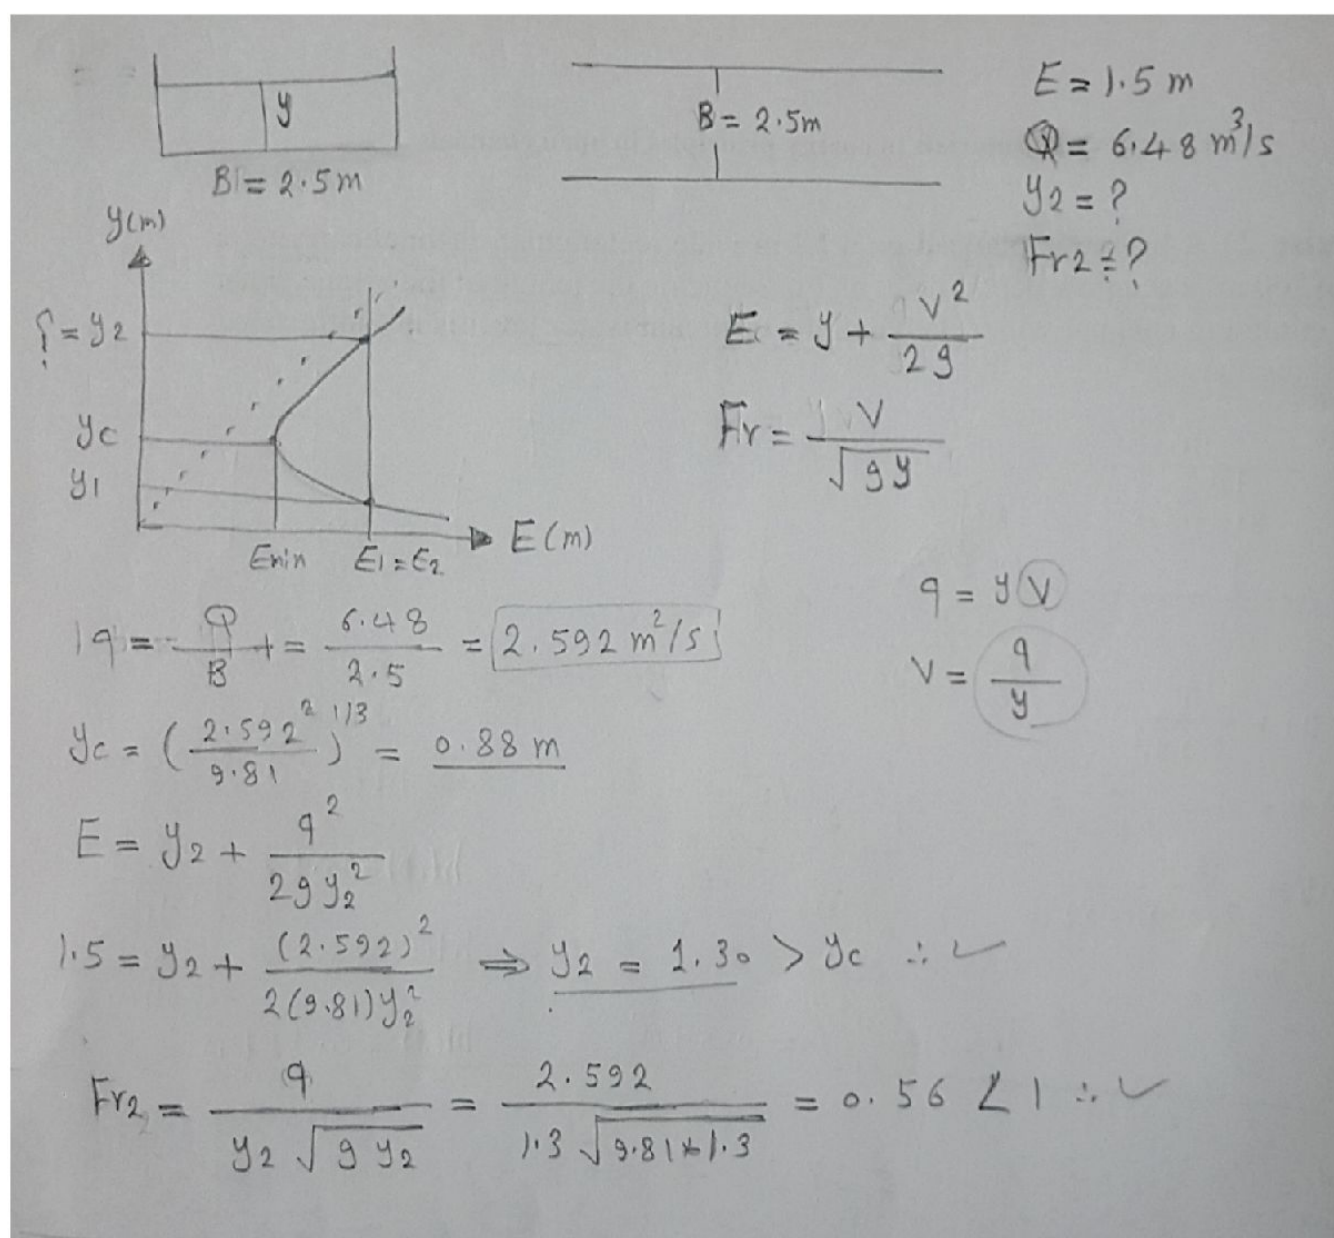 y
B = 2.5m
B = 2.5m
E = 1.5 m
Q = 6.48 m³/s
y2 = ?
Fr2 = ?
y(m)
? = y2
yc
y1
Emin
E1 = E2
E(m)
E = y + v²/2g
Fr = v/√gy
q = Q/B = 6.48/2.5 = 2.592 m²/s
q = y v
v = q/y
yc = (2.592²/9.81)^1/3 = 0.88 m
E = y2 + q²/2g y2²
1.5 = y2 + (2.592)²/2(9.81)y2² ⇒ y2 = 1.30 > yc ∴ ✓
Fr2 = q/y2 √g y2 = 2.592/1.3 √9.81*1.3 = 0.56 < 1 ∴ ✓